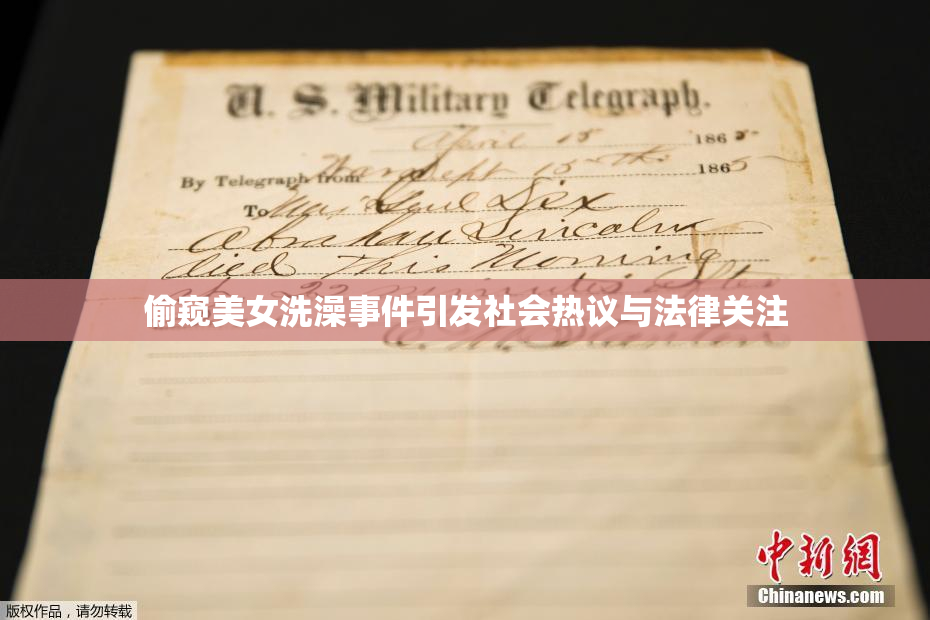 U. S. Military Telegraph.
April 15 1865
By Telegraph from War Dept 15th 1865
To Maj Genl Dix
Abraham Lincoln
died This Morning
at 22 minutes after
偷窥美女洗澡事件引发社会热议与法律关注
E. M. Stanton
中新網
Chinanews.com
版权作品，请勿转载